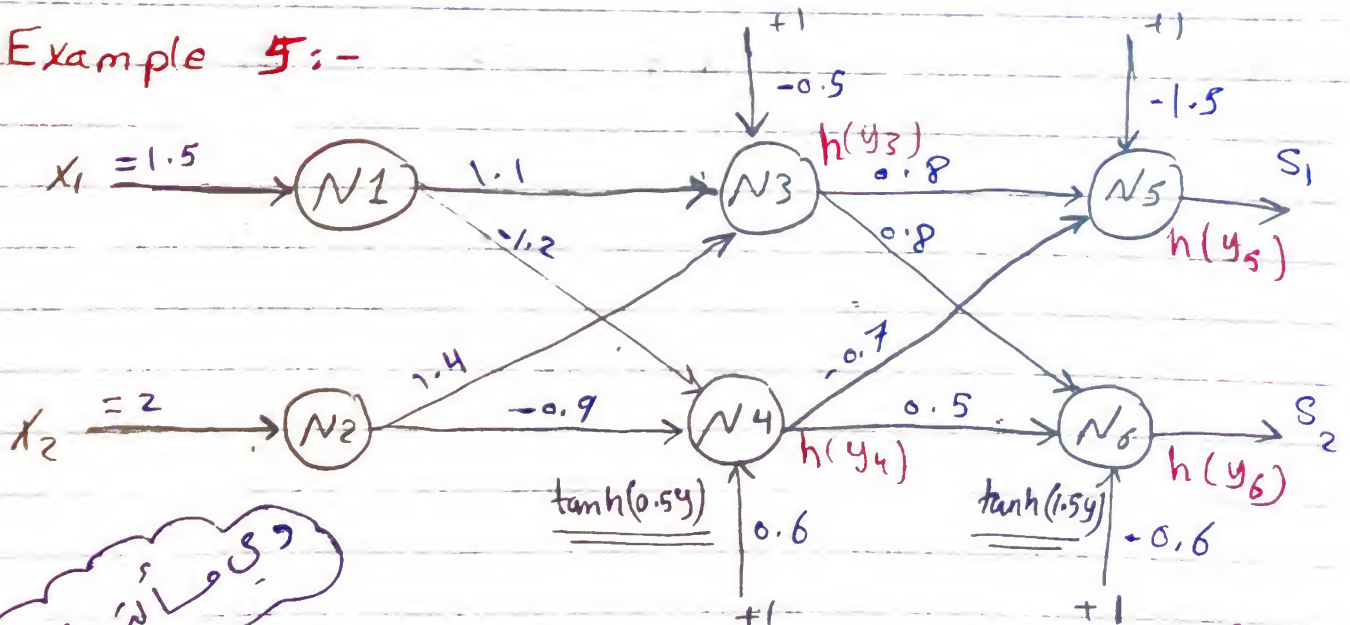 Example 5:-
+1
+1
-0.5
-1.5
X1 = 1.5
N1
1.1
N3
h(y3)
0.8
N5
S1
h(y5)
0.8
-0.7
X2 = 2
N2
1.4
-0.9
N4
h(y4)
0.5
N6
S2
h(y6)
tanh(0.5y)
0.6
tanh(1.5y)
-0.6
+1
+1